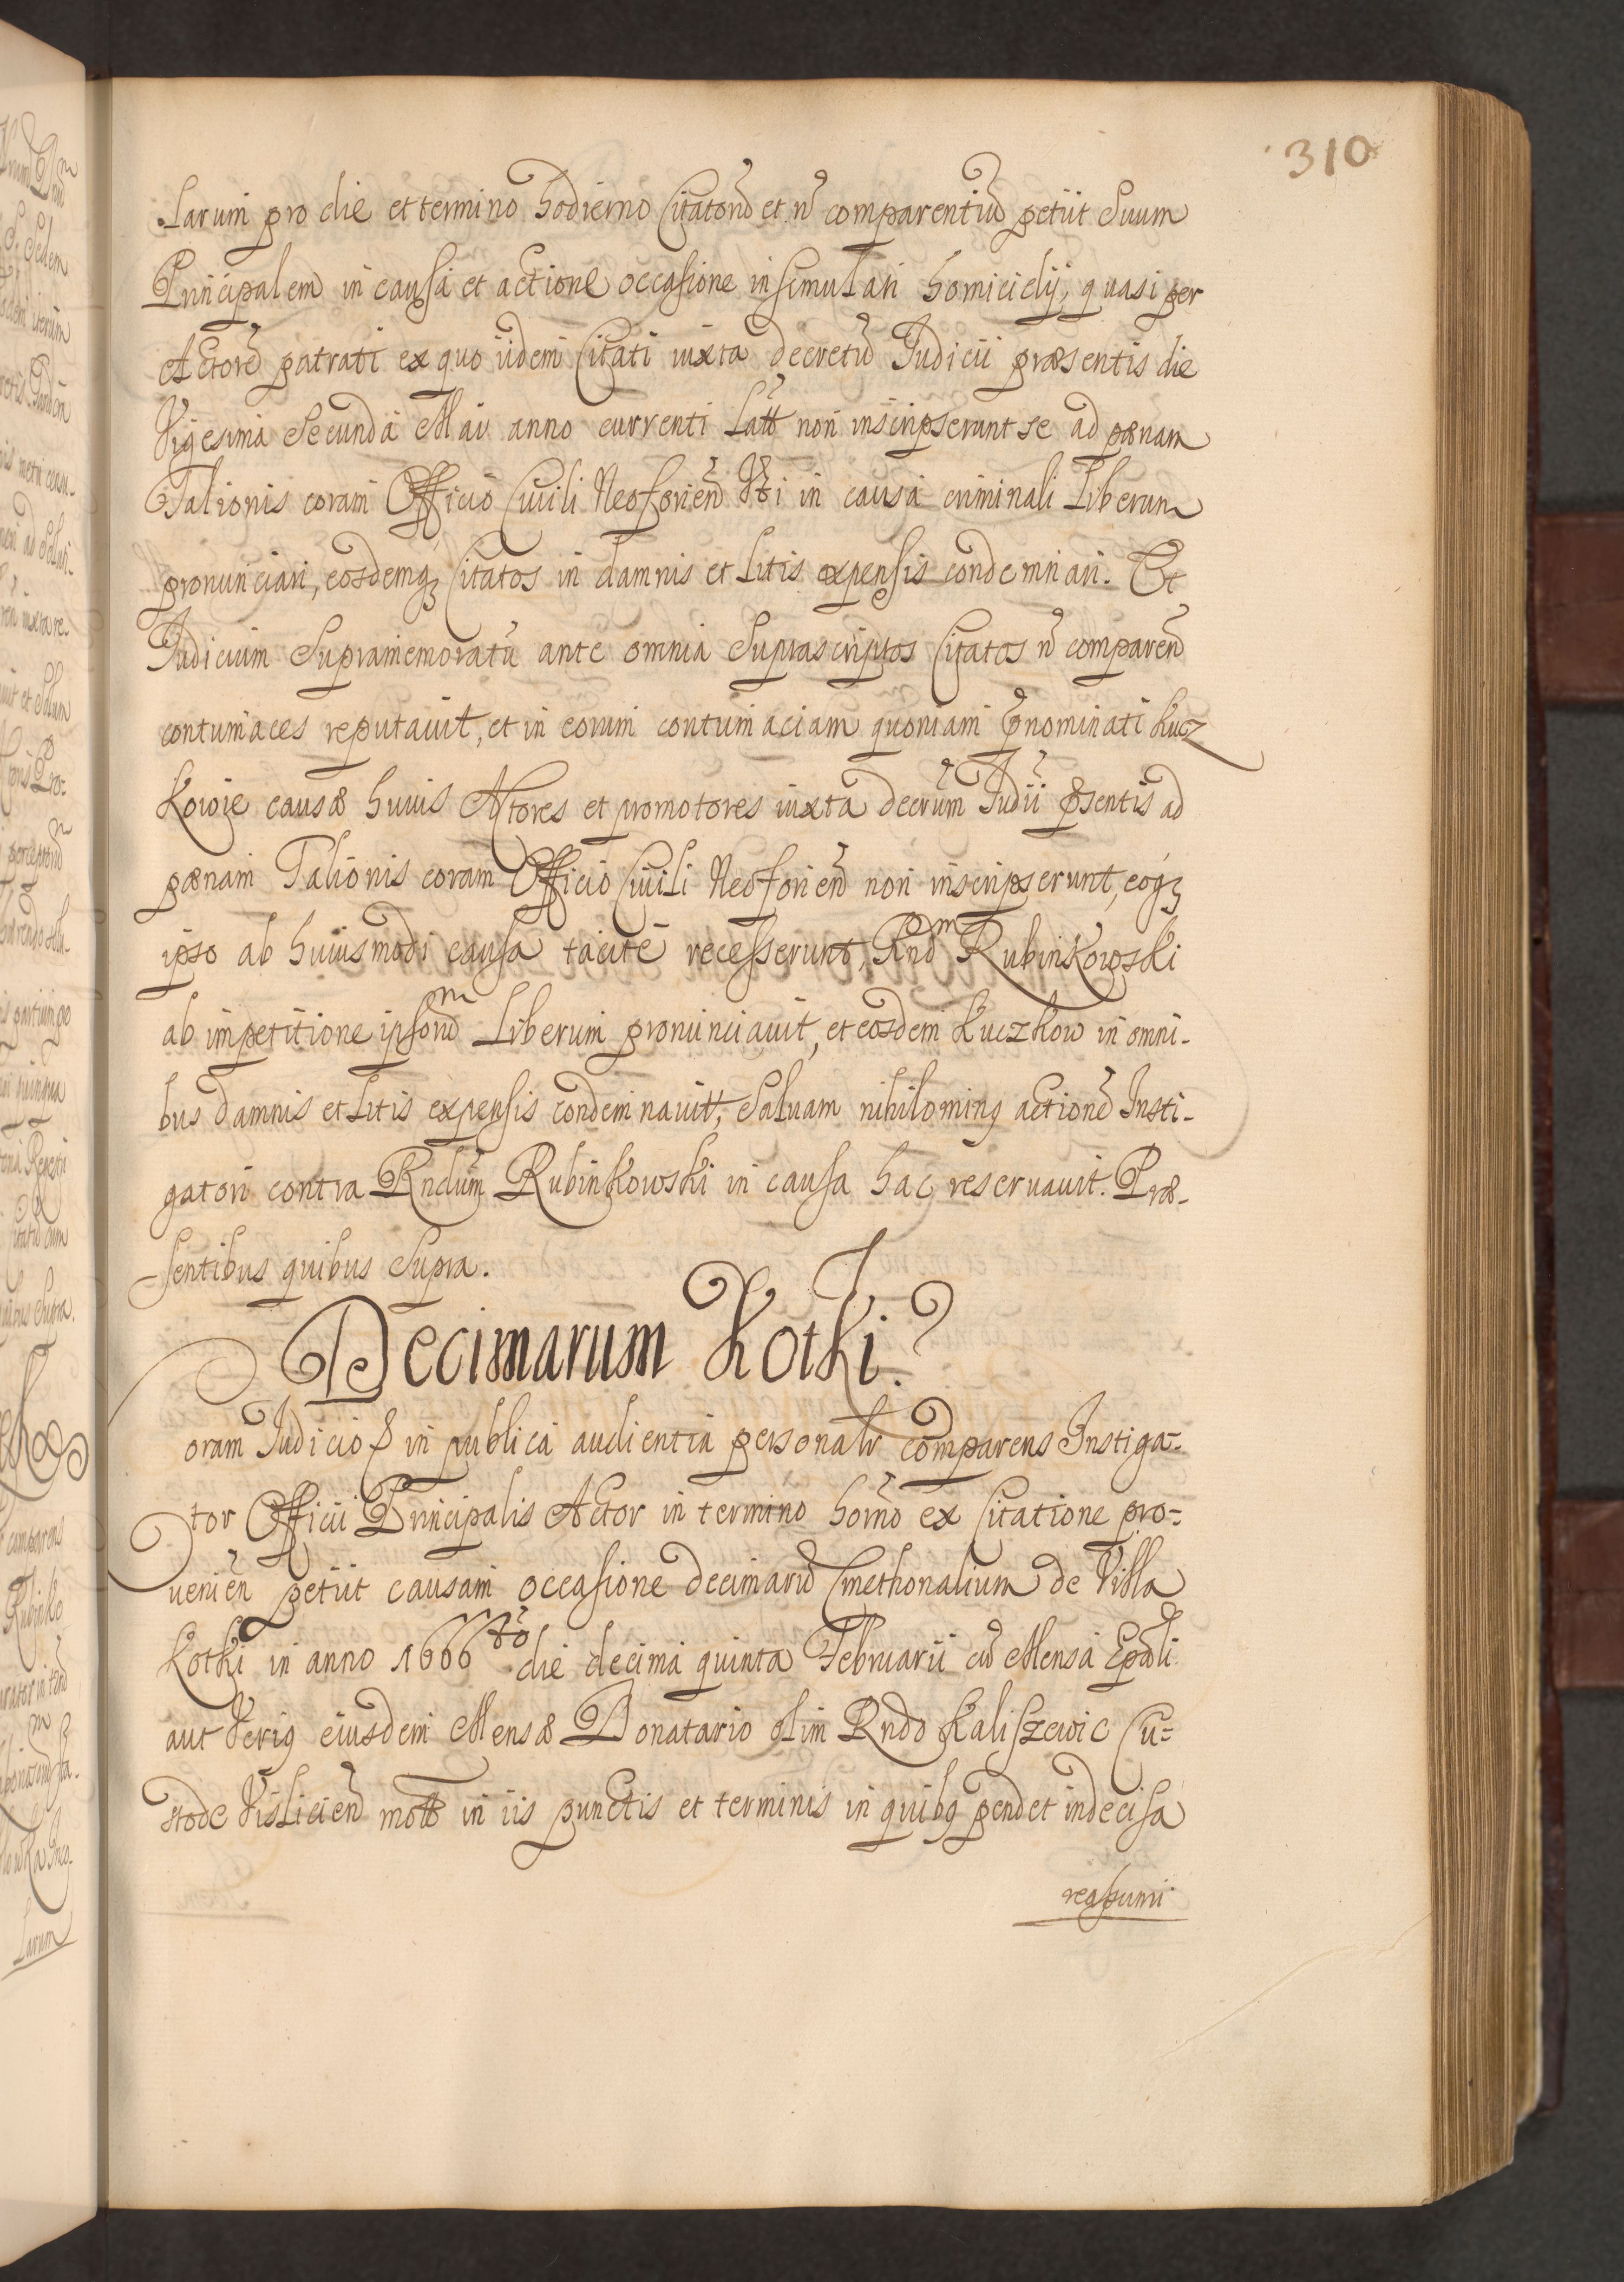 310
larum pro die et termino hodierno Citatorũ et ñ comparentiũ petiit Suum
Principalem in causa et actione occasione insimulati homicidij, quasi per
Actorẽ patrati ex quo iidem Citati iuxta decretũ Judicii præsentis die
Vigesima Secunda Maii anno currenti latt non inscripserunt se ad pœnam
Talionis coram Officio Civili Neoforieñ Vti in causa criminali Liberum
pronunciari, eosdemqꝫ Citatos in damnis et Litis expensis condemnari. Et
Judicium Supramemoratũ ante omnia Suprascriptos Citatos ñ compareñ
contumaces reputavit, et in eorum contumaciam quoniam p̃nominati Kucz
Kowie causæ huius Actores et promotores iuxta decrũm Judii p̃sentis ad
pœnam Talionis coram Officio Civili Neoforieñ non inscripserunt, eoqꝫ
ipso ab huiusmodi causa tacitè recesserunt, Rnd͠m Rubinkowski
ab impetitione ipsorũm Liberum pronunciavit, et eosdem Kuczkow in omni-
bus damnis et Litis expensis condemnavit, Salvam nihilominꝯ actionẽ Insti-
gatori contra Rndum Rubinkowski in causa hac reservavit. Præ-
sentibus quibus Supra.
Decimarum Kotki.
oram Judicio & in publica audientia personalr comparens Instiga-
tor Officii Principalis Actor in termino horno ex Citatione pro-
venieñ petiit causam occasione decimarũ Cmethonalium de Villa
Kotki in anno 1666to die decima quinta Februarii cũ Mensa Epali
aut Veriꝯ eiusdem Mensæ Donatario olim Rndo Kaliszewic Cu-
stode Vislicieñ mott in iis punctis et terminis in quibꝯ pendet indecisa
reassumi